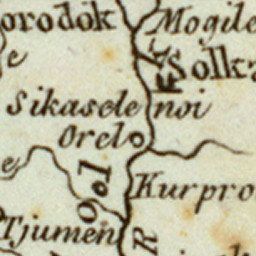 orodok
Mogile
Solk
Sikaselenoi
Orel
Kurpro
Tjumen
R